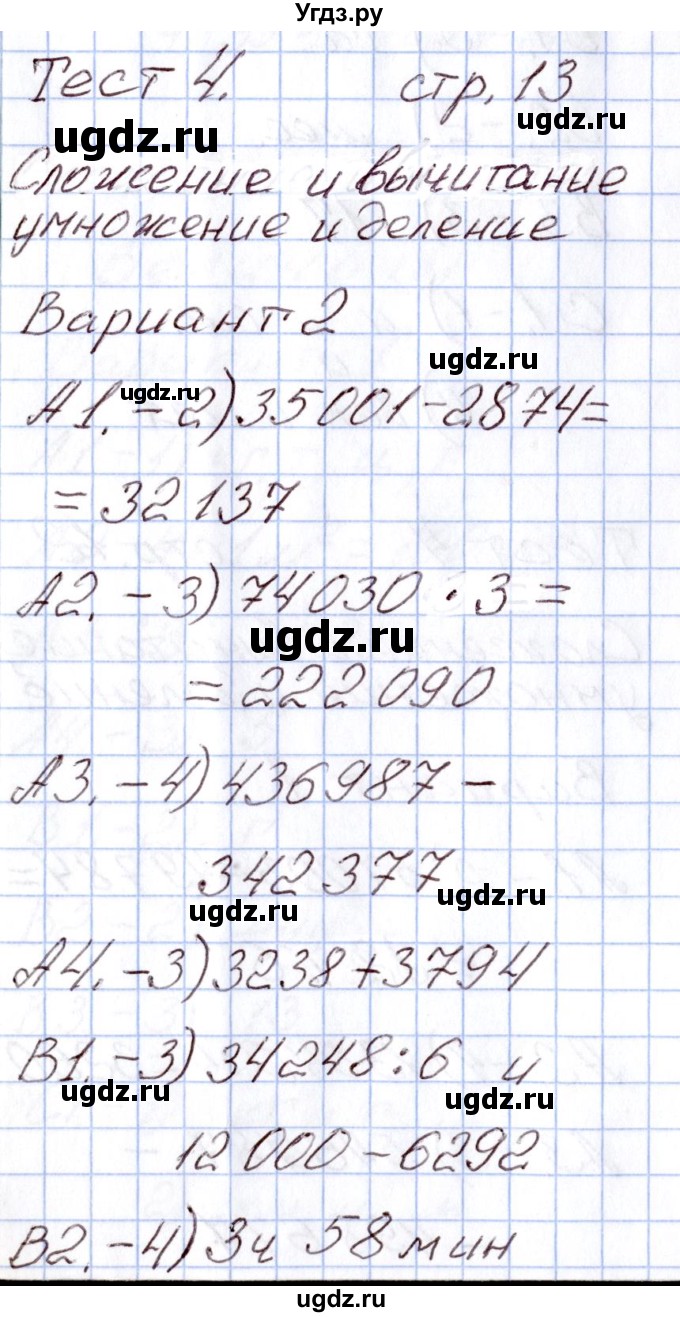 Угдз.ру
Тест 4. стр. 13
ugdz.ru
ugdz.ru
Сложение и вычитание
умножение и деление
Вариант 2
ugdz.ru
ugdz.ru
А1. - 2) 35001-2874=
= 32137
А2. - 3) 74030 · 3 =
ugdz.ru
= 222 090
А3. - 4) 436987 -
342377
ugdz.ru
ugdz.ru
А4. - 3) 3238+3794
В1. - 3) 34248:6 и
ugdz.ru
ugdz.ru
12 000 - 6292
В2. - 4) 3ч 58 мин
ugdz.ru